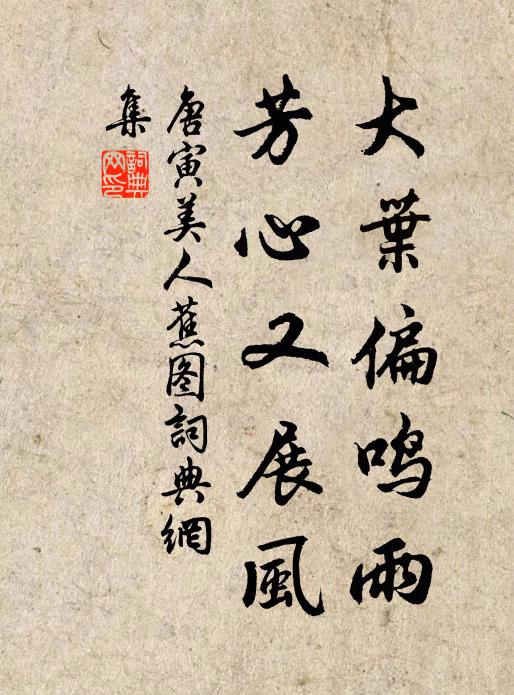 大葉偏鳴雨
芳心又展風
唐寅美人蕉图詞典網
集
詞典
网印